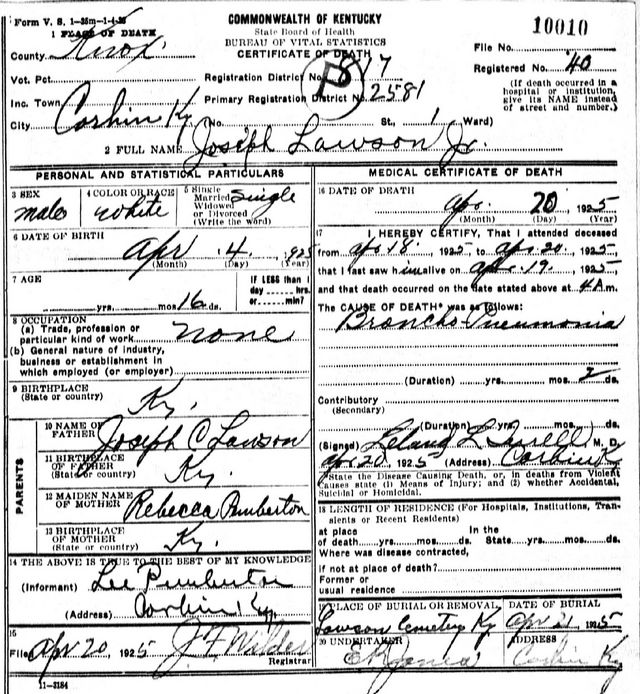 Form V. S. 1-35m-1-4-25
1 PLACE OF DEATH
COMMONWEALTH OF KENTUCKY
State Board of Health
BUREAU OF VITAL STATISTICS
CERTIFICATE OF DEATH
10010
File No.
Registered No. 40
(If death occurred in a hospital or institution, give its NAME instead of street and number.)
County Knox
Vot. Pct
Registration District No. 817
P
Inc. Town
Primary Registration District No. 2581
City Corbin Ky (No. St., 1 Ward)
2 FULL NAME Joseph Lawson Jr.
PERSONAL AND STATISTICAL PARTICULARS
3 SEX male
4 COLOR OR RACE white
5 Single Married Widowed or Divorced (Write the word) single
6 DATE OF BIRTH
Apr 4, 1925
(Month) (Day) (Year)
7 AGE
IF LESS than 1 day hrs. or min?
yrs. mos. 16 ds.
8 OCCUPATION
(a) Trade, profession or particular kind of work none
(b) General nature of industry, business or establishment in which employed (or employer)
9 BIRTHPLACE
(State or country) Ky.
PARENTS
10 NAME OF FATHER Joseph C Lawson
11 BIRTHPLACE OF FATHER
(State or country) Ky.
12 MAIDEN NAME OF MOTHER Rebecca Pemberton
13 BIRTHPLACE OF MOTHER
(State or country) Ky.
14 THE ABOVE IS TRUE TO THE BEST OF MY KNOWLEDGE
(Informant) Lee Pemberton
(Address) Corbin, Ky
15
Filed Apr 20, 1925 J F Wilder
Registrar
11-3184
MEDICAL CERTIFICATE OF DEATH
16 DATE OF DEATH
Apr. 20, 1925
(Month) (Day) (Year)
17 I HEREBY CERTIFY, That I attended deceased
from Apr 18, 1925, to Apr. 20, 1925,
that I last saw him alive on Apr. 19, 1925
and that death occurred on the date stated above at 4 A m.
The CAUSE OF DEATH* was as follows:
Broncho Pneumonia
(Duration) yrs. mos. 2 ds.
Contributory
(Secondary)
(Duration) yrs. mos. ds.
(Signed) Leland L M. D.
Apr 20, 1925 (Address) Corbin K
*State the Disease Causing Death, or, in deaths from Violent
Causes state (1) Means of Injury; and (2) whether Accidental,
Suicidal or Homicidal.
18 LENGTH OF RESIDENCE (For Hospitals, Institutions, Transients or Recent Residents)
at place of death yrs. mos. ds. In the State yrs. mos. ds.
Where was disease contracted,
if not at place of death?
Former or
usual residence
19 PLACE OF BURIAL OR REMOVAL
Lawson Cemetery Ky
DATE OF BURIAL
Apr 21, 1925
20 UNDERTAKER
Jones
ADDRESS
Corbin Ky